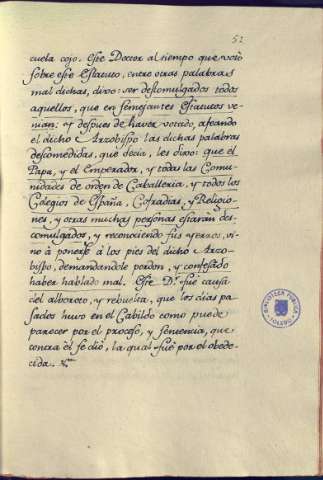 52
cuela cojo. Este Doctor al tiempo que votò
sobre este Estatuto, entre otras palabras
mal dichas, dixo: ser descomulgados todos
aquellos, que en semejantes Estatutos ve-
nian: y despues de haver votado, afeando
el dicho Arzobispo las dichas palabras
descomedidas, que decia, les dixo: que el
Papa, y el Emperador, y todas las Comu-
nidades de orden de Caballeria, y todos los
Colegios de España, Cofradias, y Religio-
nes y otras muchas personas estaràn des-
comulgados, y reconociendo sus yerros, vi-
no à ponerse à los pies del dicho Arzo-
bispo, demandandole perdon, y confesado
haber hablado mal. Este D.r fue causa
del alboroto, y rebuelta, que los dias pa-
sados huvo en el Cabildo como puede
parecer por el proceso, y sentencia, que
contra èl se diò, la qual fuè por el obede-
cida.
BIBLIOTECA PUBLICA
TOLEDO